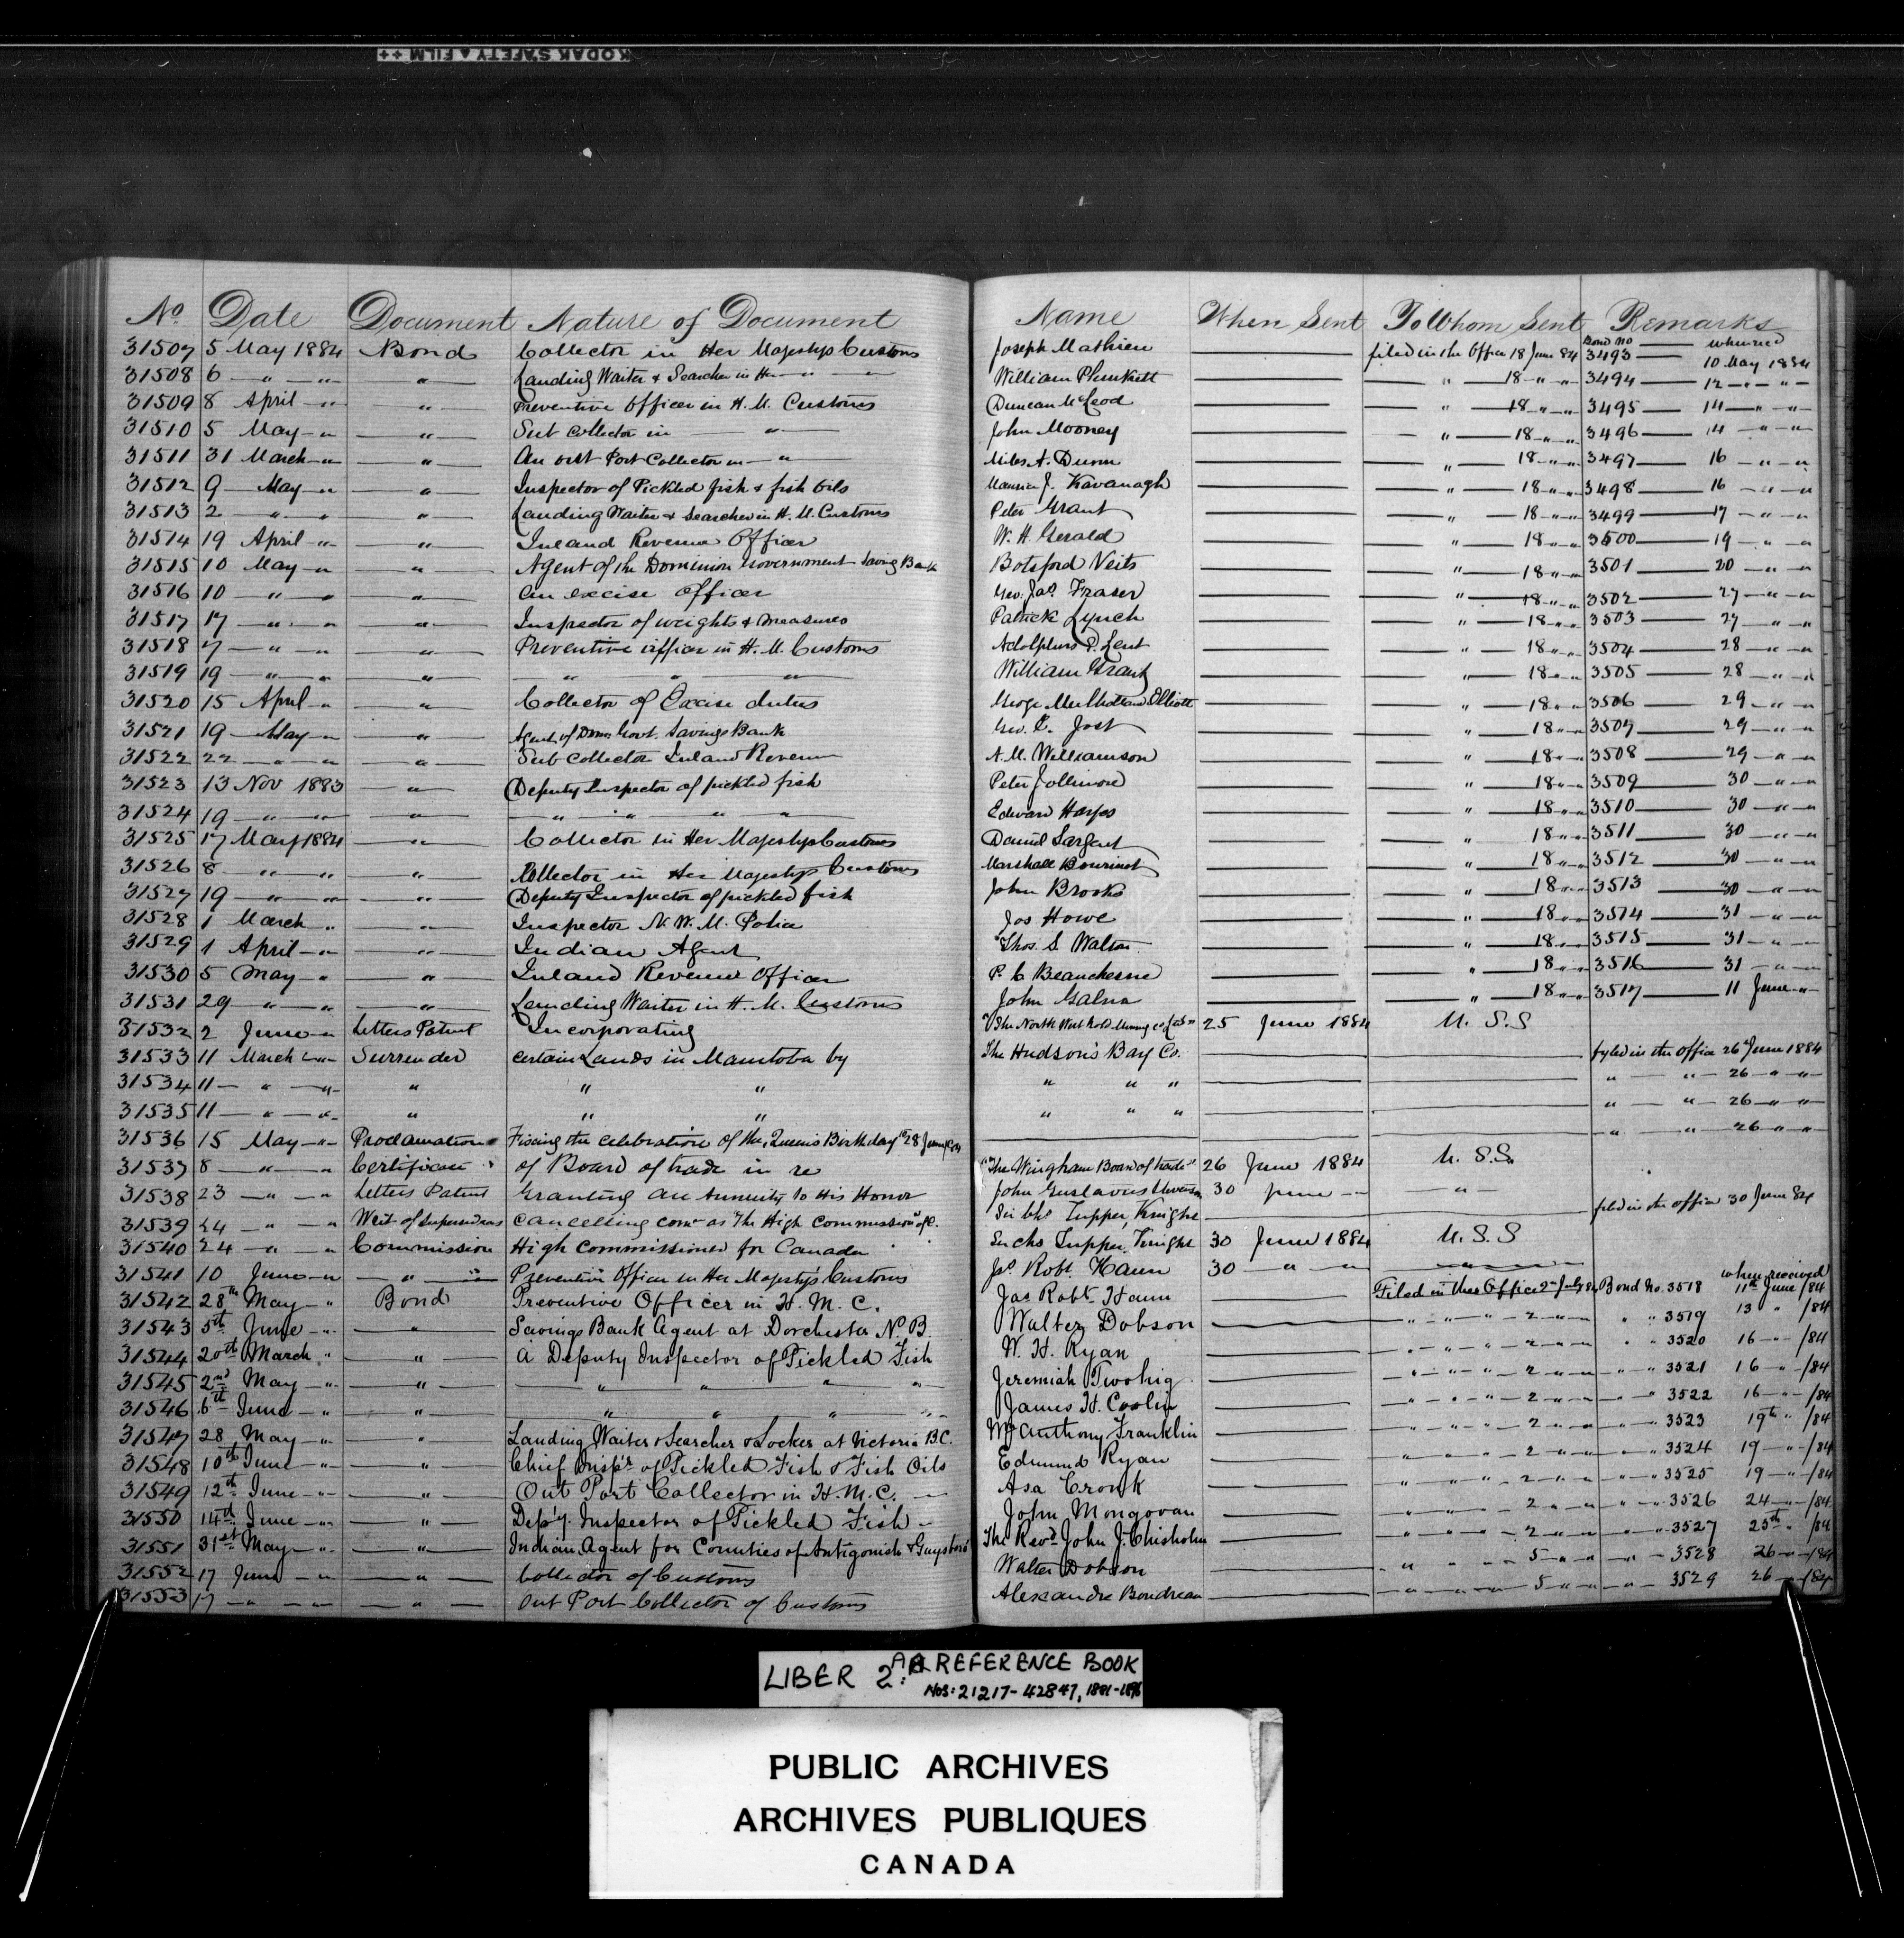 KODAK SAFETY FILM ++
No. Date Document Nature of Document Name When Sent To Whom Sent Remarks
31507 5 May 1884 Bond Collector in Her Majestys Customs Joseph Mathieu — filed in the Office 18 June 84 Bond No 3493 — when recd 10 May 1884
31508 6 — " — " — " — Landing Waiter & Searcher in Her — " — " William Plunkett — " — 18 " " 3494 — 12 — " — " —
31509 8 April — " — " — Preventive Officer in H. M. Customs Duncan McLeod — " — 18 " " 3495 — 14 — " — "
31510 5 May — " — " — Sub Collector in — " — John Mooney — " — 18 " " 3496 — 14 — " — "
31511 31 March — " — " — An out Port Collector in — " — Miles A. Dunn — " — 18 " " 3497 — 16 — " — "
31512 9 — May — " — " — Inspector of Pickled fish & fish Oils Maurice J. Kavanagh — " — 18 " " 3498 — 16 — " — "
31513 2 — " — " — " — Landing Waiter & Searcher in H. M. Customs Peter Grant — " — 18 " " 3499 — 17 — " — "
31514 19 April — " — " — Inland Revenue Officer W. H. Gerald — " — 18 " " 3500 — 19 — " — "
31515 10 May — " — " — Agent of the Dominion Government Saving Bank Botsford Veits — " — 18 " " 3501 — 20 — " — "
31516 10 — " — " — " — An excise Officer Geo. Jas. Fraser — " — 18 " " 3502 — 27 — " — "
31517 17 — " — " — " — Inspector of weights & measures Patrick Lynch — " — 18 " " 3503 — 27 — " — "
31518 7 — " — " — " — Preventive officer in H. M. Customs Adolphus D. Lent — " — 18 " " 3504 — 28 — " — "
31519 19 — " — " — " — " " " William Grant — " — 18 " " 3505 — 28 — " — "
31520 15 April — " — " — Collector of Excise duties George Elliott — " — 18 " " 3506 — 29 — " — "
31521 19 — May — " — " — Agent of Domn Govt. Savings Bank Geo. E. Jost — " — 18 " " 3507 — 29 — " — "
31522 22 — " — " — " — Sub Collector Inland Revenue A. M. Williamson — " — 18 " " 3508 — 29 — " — "
31523 13 Nov 1883 — " — Deputy Inspector of pickled fish Peter Jollimore — " — 18 " " 3509 — 30 — " — "
31524 19 — " — " — " — " " " " Edward Hayes — " — 18 " " 3510 — 30 — " — "
31525 17 May 1884 — " — Collector in Her Majestys Customs Daniel Sargent — " — 18 " " 3511 — 30 — " — "
31526 8 — " — " — " — Collector in Her Majestys Customs Marshall Bourinot — " — 18 " " 3512 — 30 — " — "
31527 19 — " — " — " — Deputy Inspector of pickled fish John Brooks — " — 18 " " 3513 — 30 — " — "
31528 1 March " — " — Inspector N. W. M. Police Jos Howe — " — 18 " " 3514 — 31 — " — "
31529 1 April — " — " — Indian Agent Thos. S. Walton — " — 18 " " 3515 — 31 — " — "
31530 5 May — " — " — Inland Revenue Officer P. C Beauchesne — " — 18 " " 3516 — 31 — " — "
31531 29 — " — " — " — Landing Waiter in H. M. Customs John Galna — " — 18 " " 3517 — 11 June — "
31532 2 June — " Letters Patent Incorporating "The North West Mining Co 25 June 1884 U. S. S
31533 11 March — " Surrender certain Lands in Manitoba by The Hudson's Bay Co. — — fyled in the office 26 June 1884
31534 11 — " — " " " " " " " — — " — " — 26 — " — "
31535 11 — " — " " " " " " " — — " — " — 26 — " — "
31536 15 May — " Proclamation Fixing the celebration of the Queen's Birthday — — — " " 26 — " — "
31537 8 — " — " Certificate of Board of trade in re "The Wingham Board of trade" 26 June 1884 U. S. S.
31538 23 — " — " Letters Patent Granting an Annuity to His Honor John Gustavus 30 June — " — " —
31539 24 — " — " Writ of Supersedeas cancelling comn as The High Commissioner of C. Sir Chs Tupper, Knight — — filed in the office 30 June 84
31540 24 — " — " Commission High Commissioner for Canada Sir Chs Tupper, Knight 30 June 1884 U. S. S
31541 10 June — " — " — Preventive Officer in Her Majesty's Customs Jas Robt. Hann 30 — " — " —
31542 28th May — " Bond Preventive Officer in H. M. C. Jas Robt. Hann — Filed in this Office 2nd July 84 Bond No. 3518 when received 11th June /84
31543 5th June — " — " — Savings Bank Agent at Dorchester N. B. Walter Dobson — " " " " — 2 — " — " " " 3519 13 " /84
31544 20th March " — " — A Deputy Inspector of Pickled Fish W. H. Ryan — " " " " — 2 — " — " " " 3520 16 — " — /84
31545 2nd May — " — " — " " " " Jeremiah Twohig — " " " " — 2 — " — " " " 3521 16 — " — /84
31546 6th June — " — " — " " " " James H. Coolin — " " " " — 2 — " — " " " 3522 16 — " — /84
31547 28 May — " " Landing Waiter & Searcher & Locker at Victoria B.C. Wm Anthony Franklin — " " " " — 2 — " — " " " 3523 19th " /84
31548 10th June — " — " — Chief Inspr. of Pickled Fish & Fish Oils Edmund Ryan — " " " " — 2 — " — " " " 3524 19 — " — /84
31549 12th June — " — " — Out Port Collector in H. M. C. — Asa Cronk — " " " " — 2 — " — " " " 3525 19 — " — /84
31550 14th June — " — " — Dep'y. Inspector of Pickled Fish — John Mongovan — " " " " 2 — " — " " " 3526 24 — " — /84
31551 31st May — " — " — Indian Agent for Counties of Antigonish & Guysboro' The Revd. John J. Chisholm — " " " " — 2 — " — " " " 3527 25th " /84
31552 17 June — " — " — Collector of Customs Walter Dobson — " " " " 5 — " — " " — 3528 26 — " — /84
31553 17 — " — " — " — Out Port Collector of Customs Alexandre Boudreau — " " " " — 5 " " — " — 3529 26 — " — /84
LIBER 2: REFERENCE BOOK
NOS: 21217-42847, 1881-1896
PUBLIC ARCHIVES
ARCHIVES PUBLIQUES
CANADA